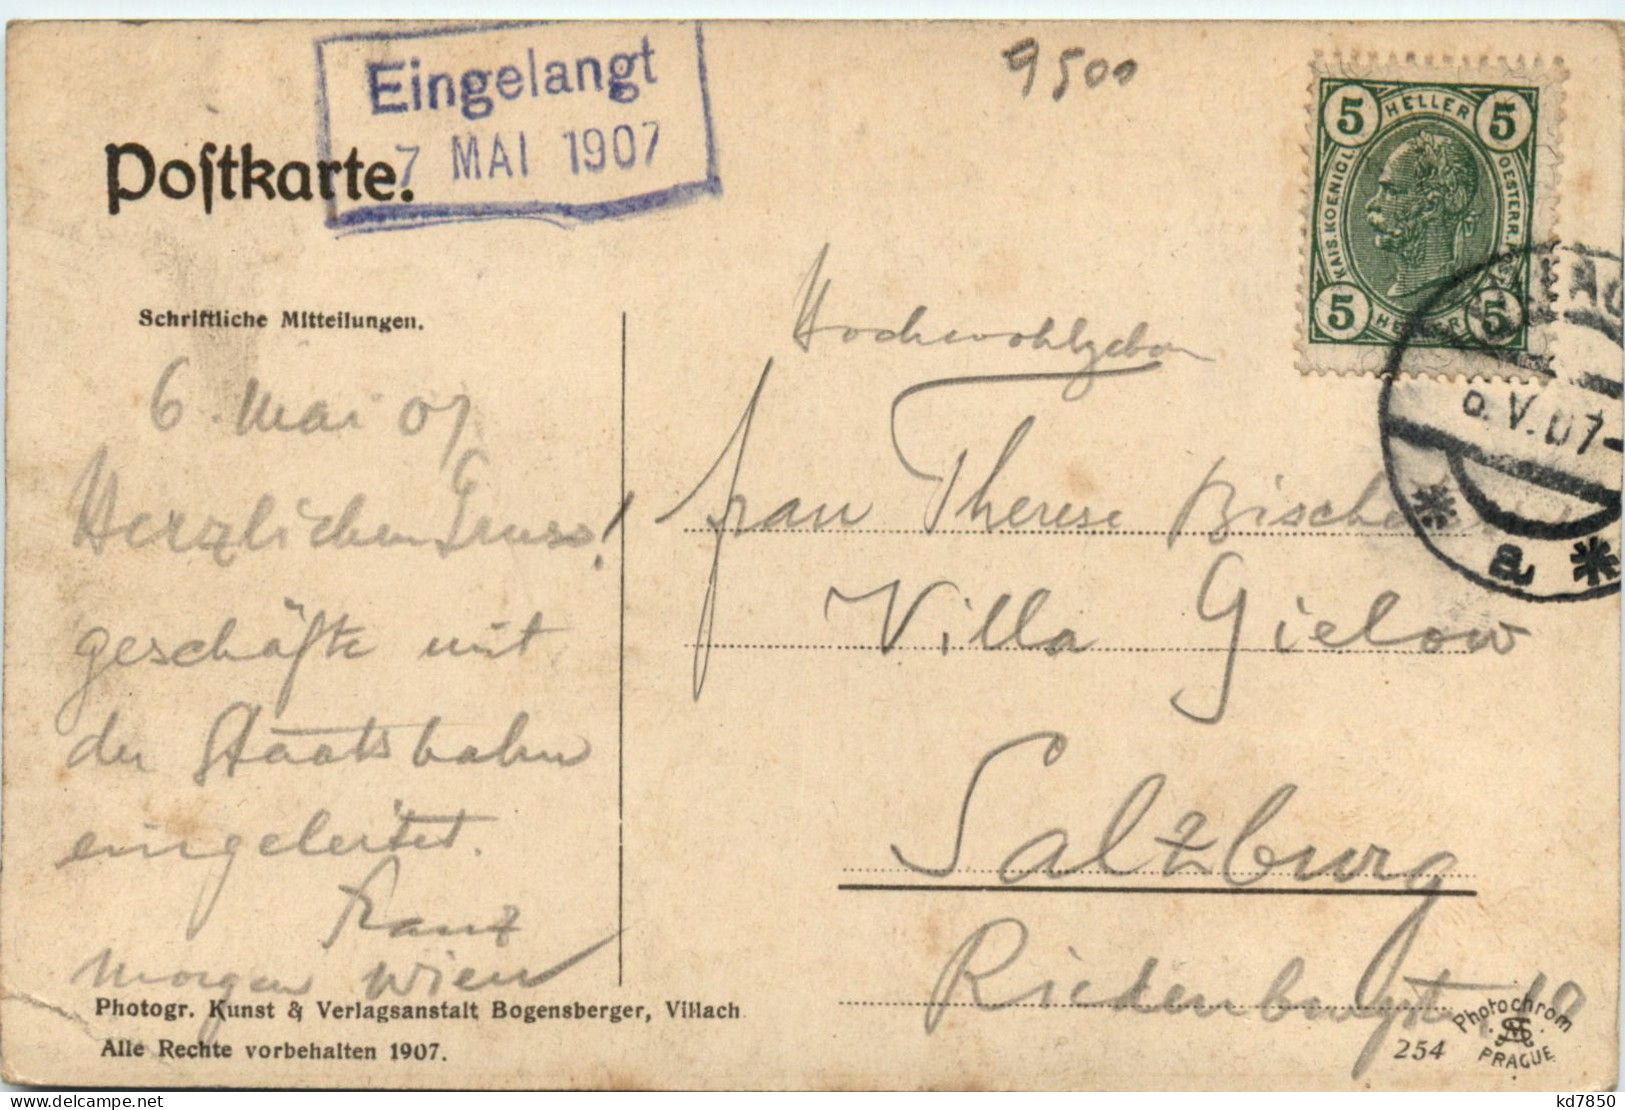 Eingelangt
7 MAI 1907
9500
Poſtkarte.
5 HELLER 5
KAIS. KOENIGL.
OESTERR.
5 HELLER 5
VILLACH
6.V.07
* a *
Schriftliche Mitteilungen.
6. Mai 07
Herzlichen Gruss!
geschäfte mit
der Staatsbahn
eingeleitet.
Franz
morgen Wien
Hochwohlgeboren
Frau Therese
Villa Gielow
Salzburg
Photogr. Kunst & Verlagsanstalt Bogensberger, Villach
Alle Rechte vorbehalten 1907.
254
Photochrom
PRAGUE
kd7850